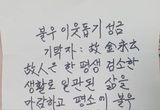 불우 이웃돕기 성금
기탁자: 故 金永玄
故人은 한 평생 검소한
생활로 일관된 삶을
마감하고 평소에 불우